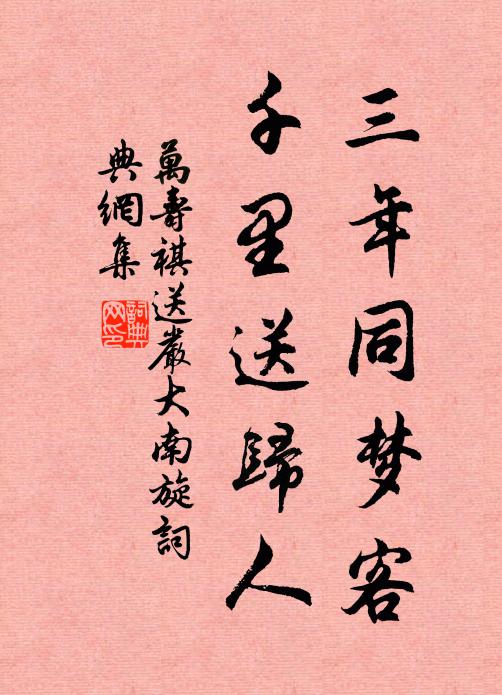 三年同梦客
千里送歸人
萬壽祺送嚴大南旋詞
典網集
詞典
网印